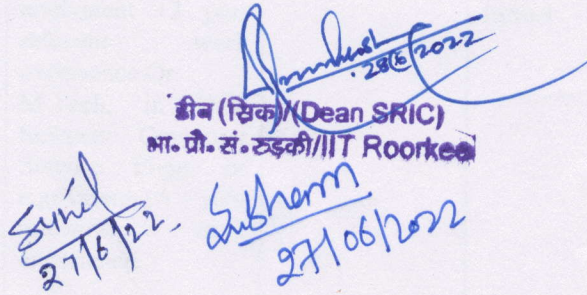 28/6/2022
डीन (सिक)/(Dean SRIC)
भा. प्रौ. सं. रुड़की/IIT Roorkee
Sunil
27/6/22.
Subham
27/06/2022